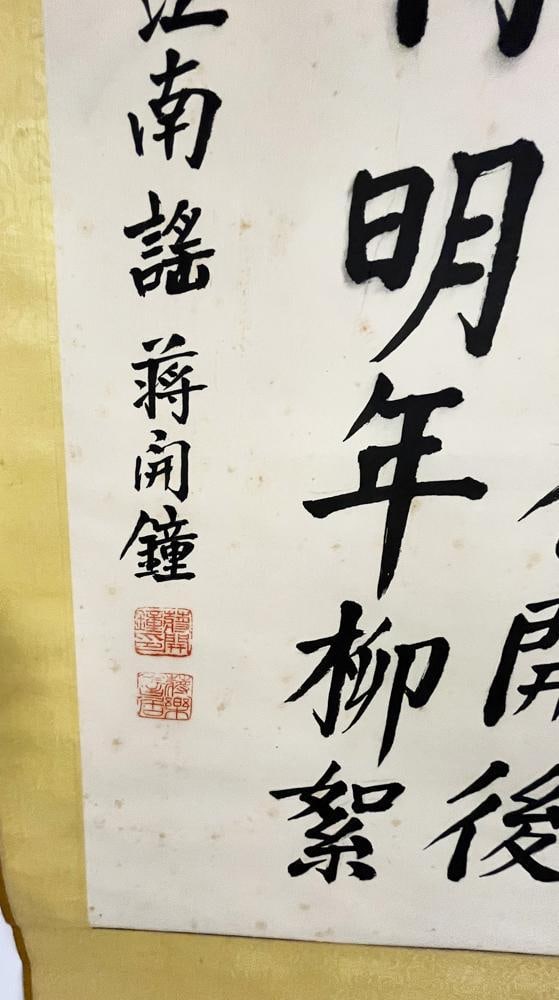 開後
明年柳絮
江南謠 蔣開鐘
蔣開鐘印